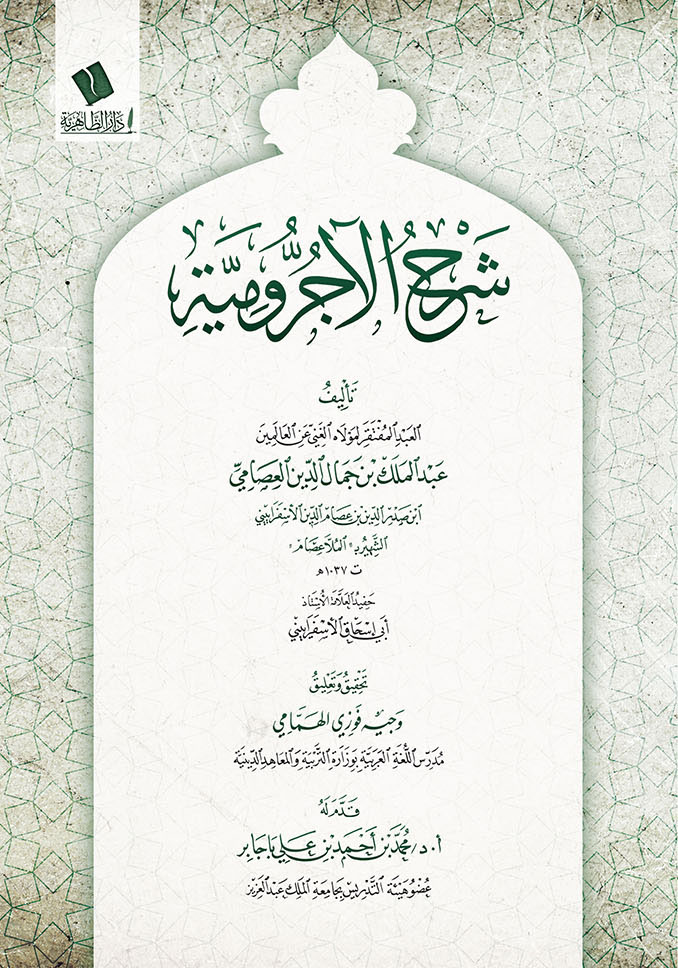 دار الظاهرية
شَرْحُ الآجُرُّومِيَّةِ
تَأْلِيفُ
العَبْدِ المُفْتَقِرِ لِمَوْلَاهُ الغَنِيِّ عَنِ العَالَمِينَ
عَبْدِ المَلِكِ بْنِ جَمَالِ الدِّينِ العِصَامِيِّ
ابْنِ صَدْرِ الدِّينِ بْنِ عِصَامِ الدِّينِ الأَسْفَرَايِينِيِّ
الشَّهِيرِ بِـ «المُلَّا عِصَام»
ت ١٠٣٧ هـ
حَفِيدِ العَلَّامَةِ الأُسْتَاذِ
أَبِي إِسْحَاقَ الأَسْفَرَايِينِيِّ
تَحْقِيقُ وَتَعْلِيقُ
وَجِيه فَوْزِي الهَمَّامِي
مُدَرِّسِ اللُّغَةِ العَرَبِيَّةِ بِوَزَارَةِ التَّرْبِيَةِ وَالمَعَاهِدِ الدِّينِيَّةِ
قَدَّمَ لَهُ
أ.د/ مُحَمَّد بْن أَحْمَد بْن عَلِي بَاجَابِر
عُضْوُ هَيْئَةِ التَّدْرِيسِ بِجَامِعَةِ المَلِكِ عَبْدِ العَزِيزِ